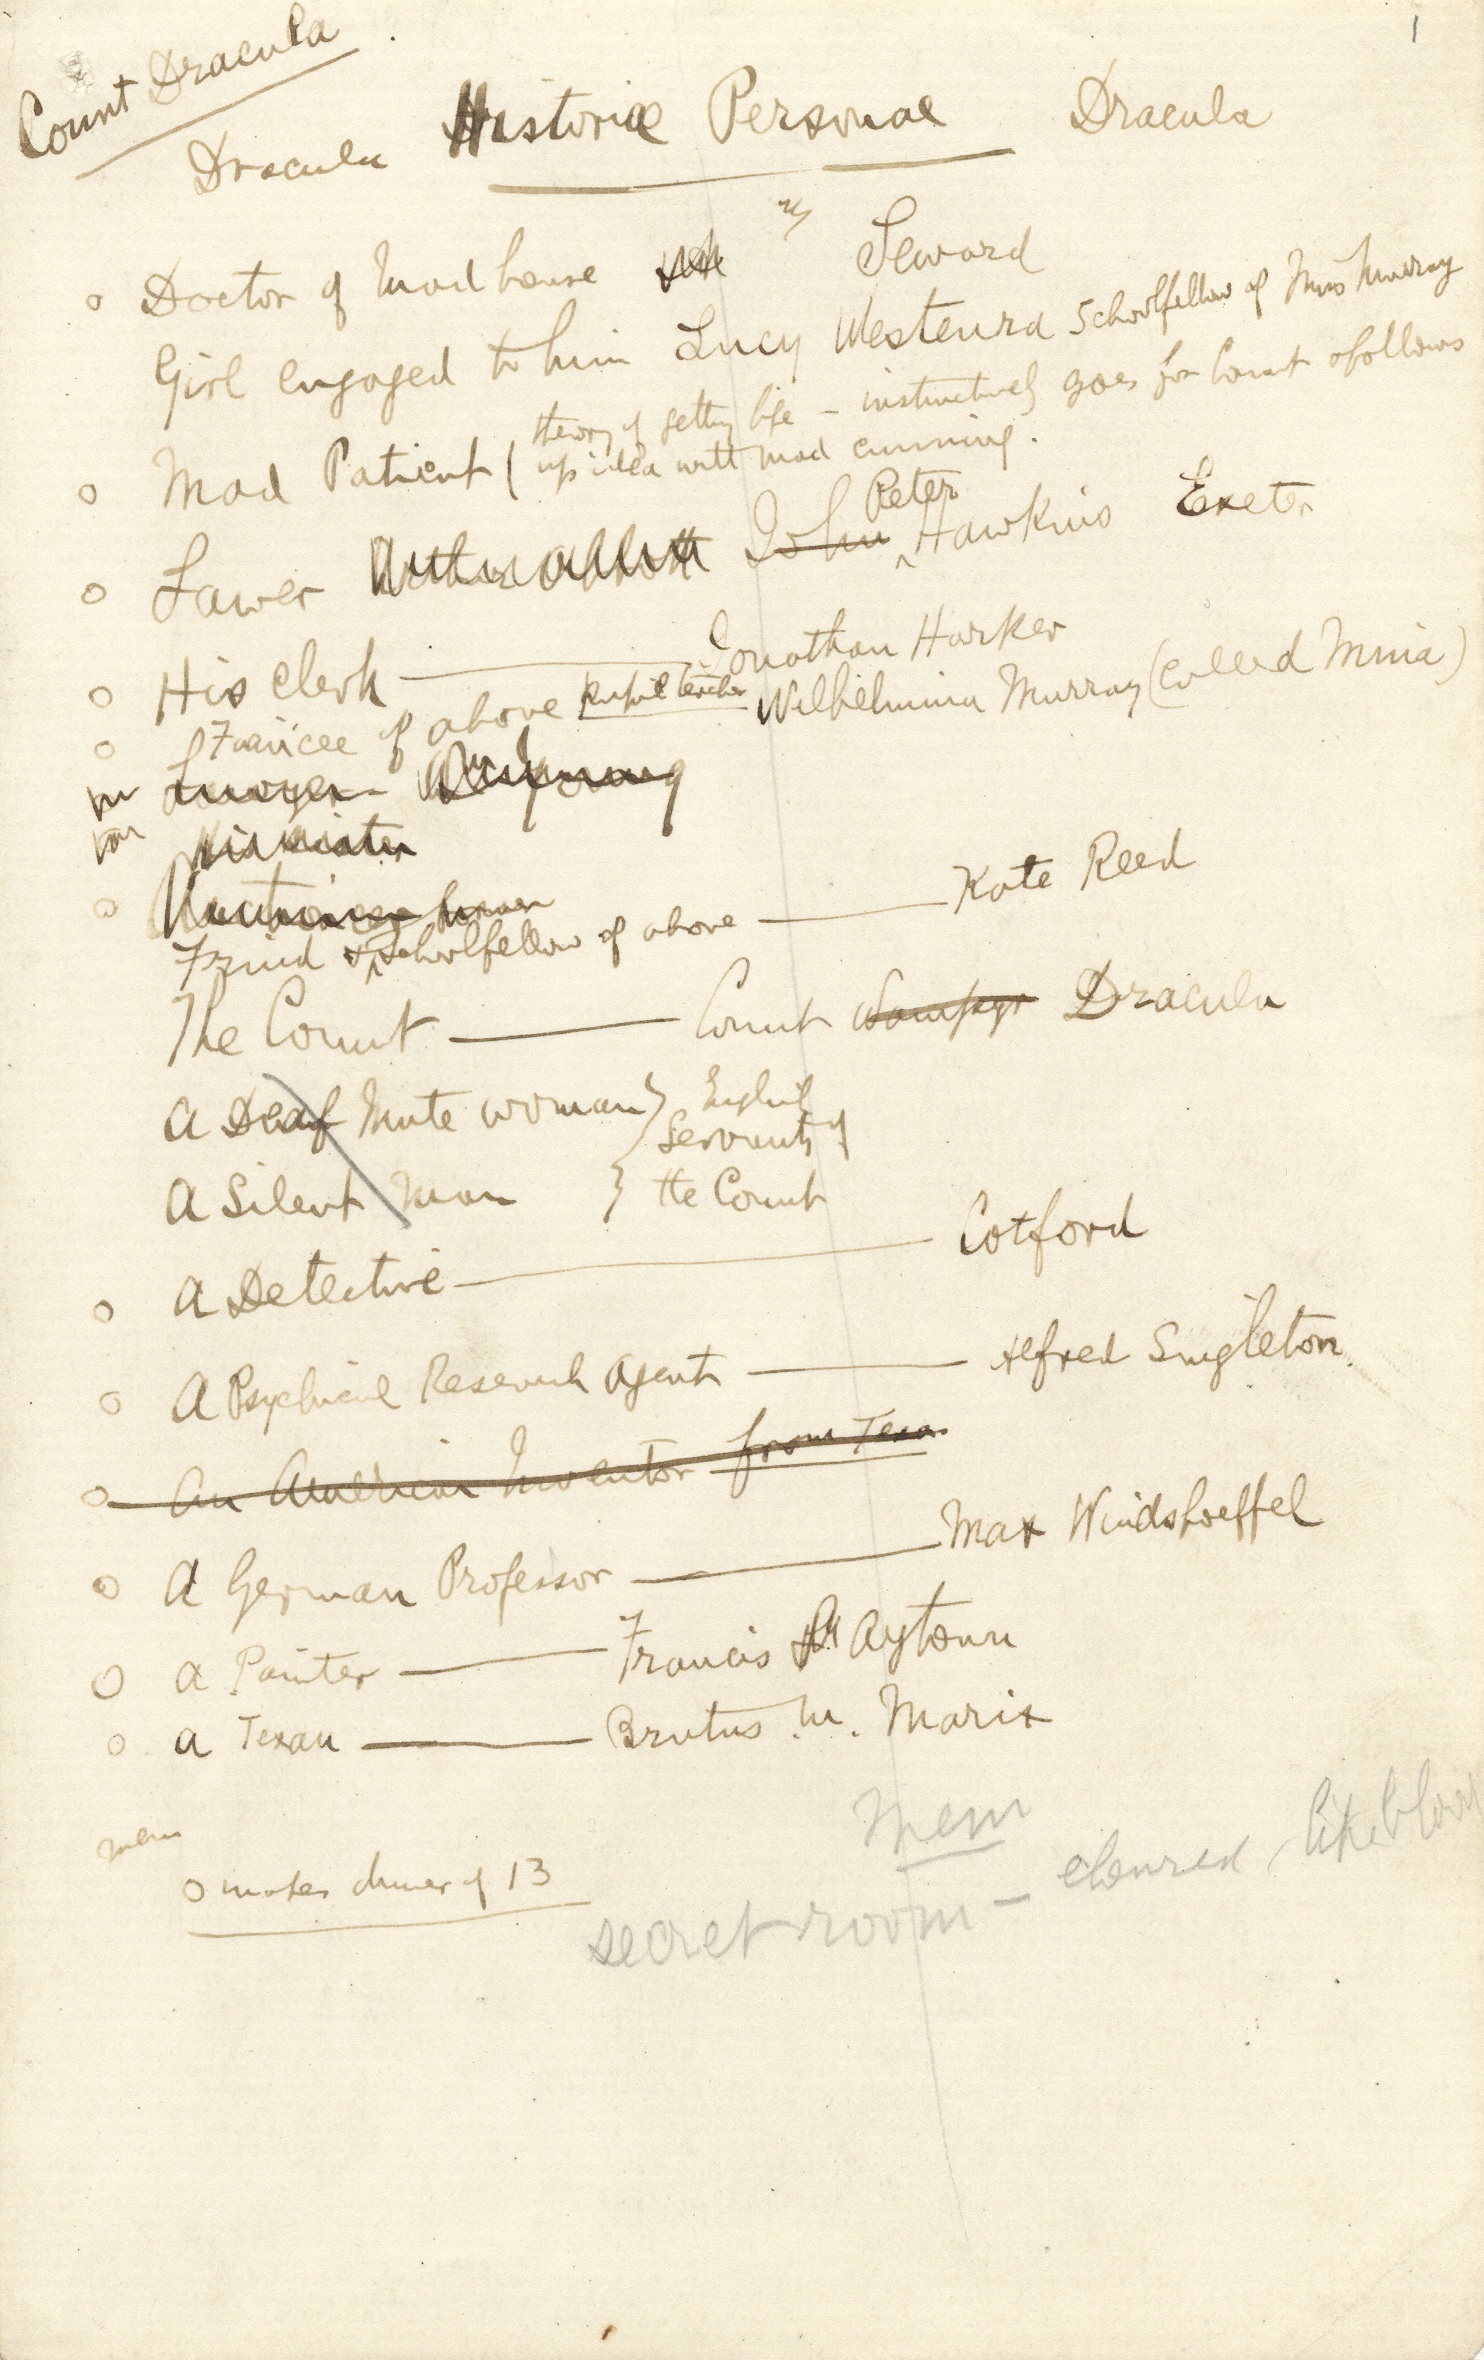 1
Count Dracula
Dracula Historiæ Personae Dracula
Doctor of Mad house Seward
Girl engaged to him Lucy Westenra Schoolfellow of Miss Murray
Mad Patient (theory of getting life – instinctively goes for Count & follows
up idea with mad cunning.
Lawer Arthur Abbott John Peter Hawkins Exeter
His Clerk — Jonathan Harker
Fiancée of above pupil teacher Wilhelmina Murray (called Mina)
Lawyer
His Sister
Friend & Schoolfellow of above — Kate Reed
The Count — Count Wampyr Dracula
A Deaf Mute woman } English
Servants of
A Silent Man } the Count
A Detective — Cotford
A Psychical Research Agent — Alfred Singleton
An American Inventor from Texas
A German Professor — Max Windshoeffel
A Painter — Francis Aytown
A Texan — Brutus M. Marix
Mem
mem
makes dinner of 13
secret room – coloured like blood